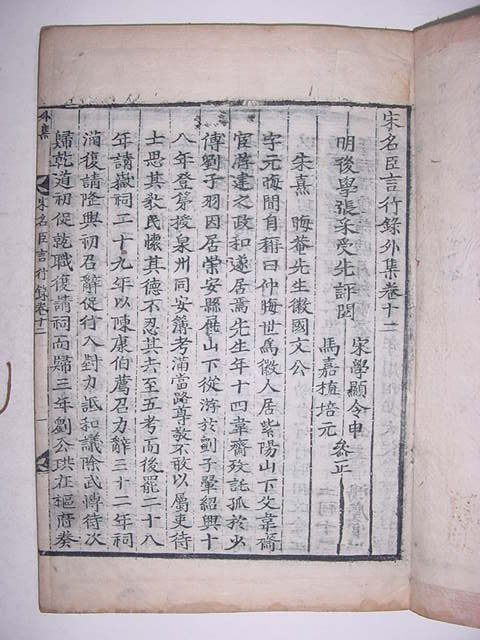 宋名臣言行錄外集卷十二
明後學張采受先評閱
宋學顯令申
馬嘉植培元
參正
朱熹　晦菴先生徽國文公
字元晦間自稱曰仲晦世爲徽人居紫陽山下父韋齋
宦游建之政和遂居焉先生年十四韋齋歿託孤於少
傅劉子羽因居崇安縣屏山下從游於劉子翬紹興十
八年登第授泉州同安簿考滿當路尊敬不敢以屬吏待
士思其教民懷其德不忍其去至五考而後罷二十八
年請嶽祠二十九年以陳康伯薦召力辭三十二年祠
滿復請隆興初召辭促行入對力詆和議除武博待次
歸乾道初促就職復請祠而歸三年劉公珙在樞府奏
外集
宋名臣言行錄卷十二